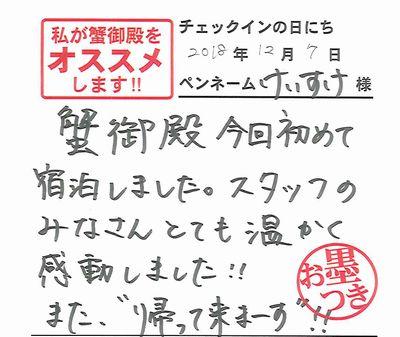 私が蟹御殿を
オススメ
します!!
チェックインの日にち
2018年12月7日
ペンネーム けいすけ 様
蟹御殿 今回初めて
宿泊しました。スタッフの
みなさんとても温かく
感動しました!!
また、"帰って来まーす"!!
お墨つき